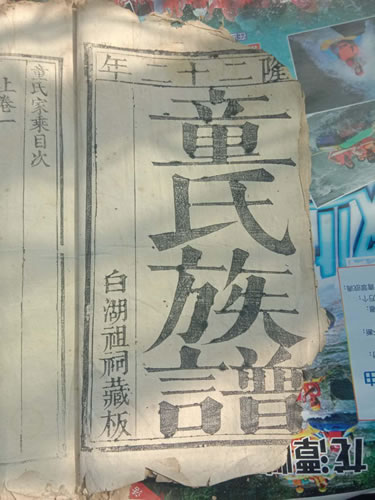 隆二十二年
童氏族譜
白湖祖祠藏板
童氏家乘目次
上卷一
漂